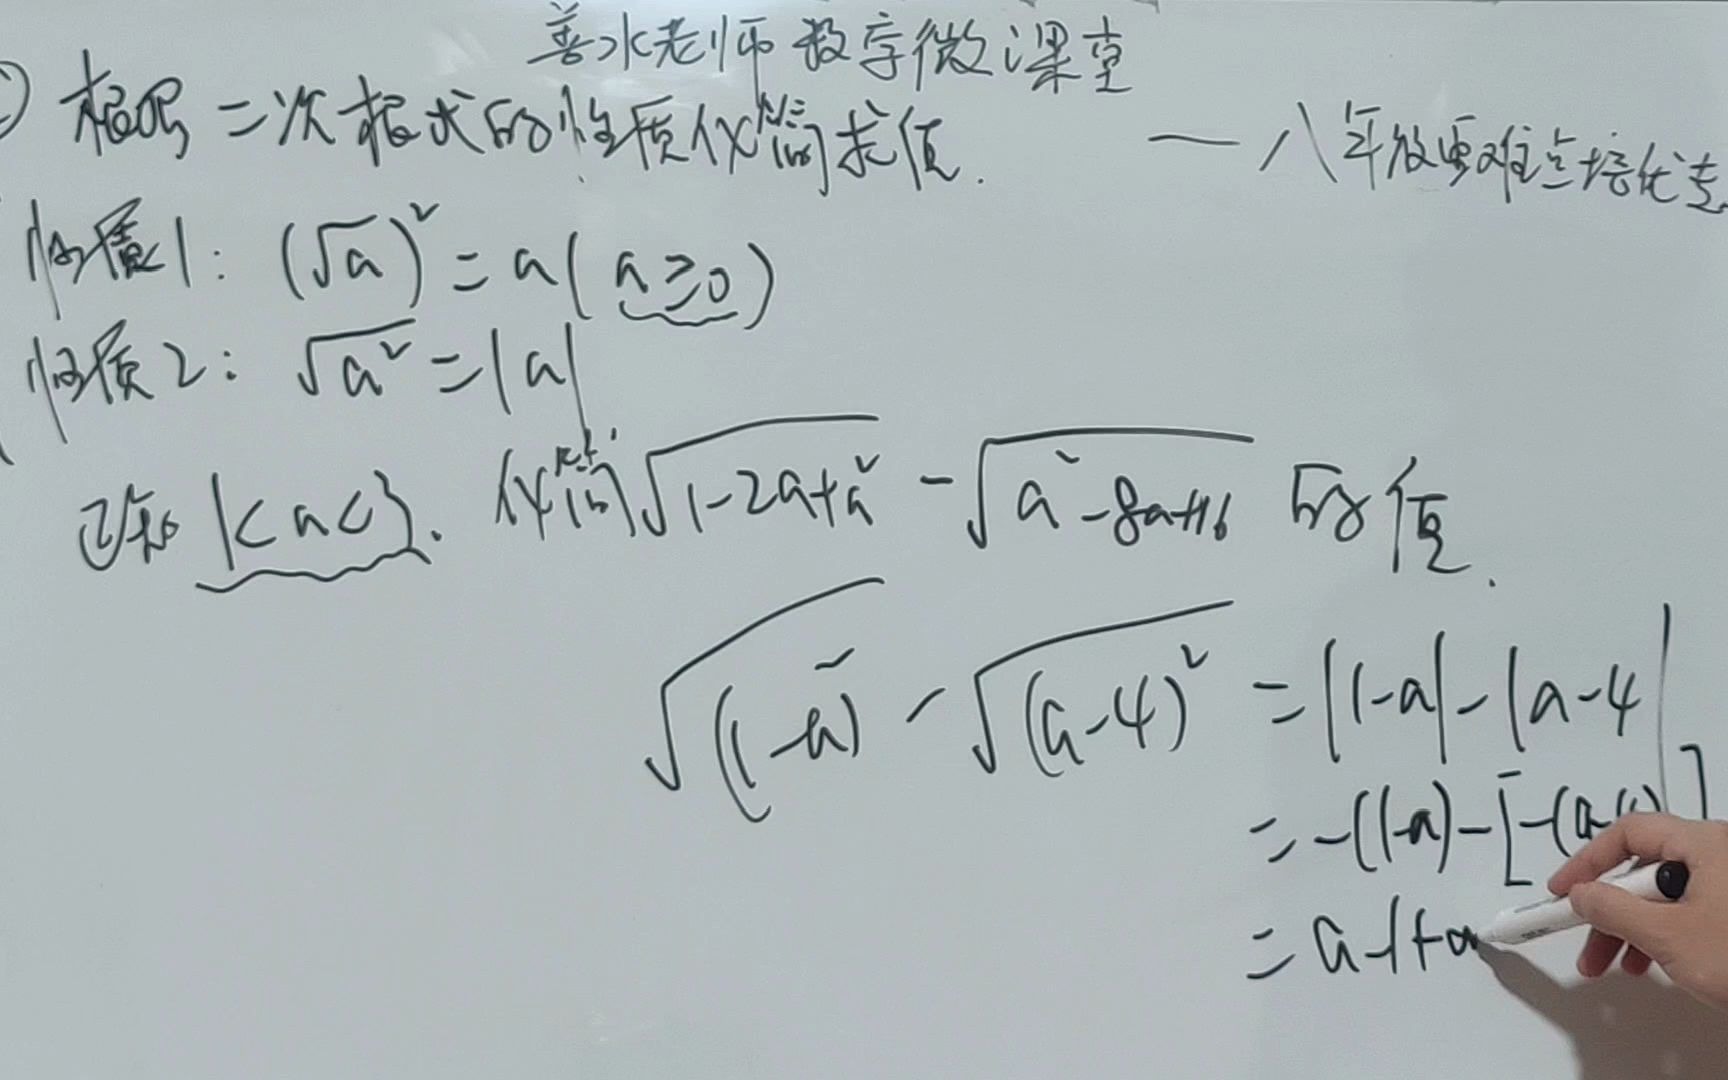 善水老师数学微课堂
根据二次根式的性质化简求值. — 八年级重难点培优专
性质1: (√a)² = a (a≥0)
性质2: √a² = |a|
已知 1<a<3. 化简√1-2a+a² - √a²-8a+16 的值.
√(1-a)² - √(a-4)² = |1-a| - |a-4|
= -(1-a) - [-(a-4)]
= a-1+a